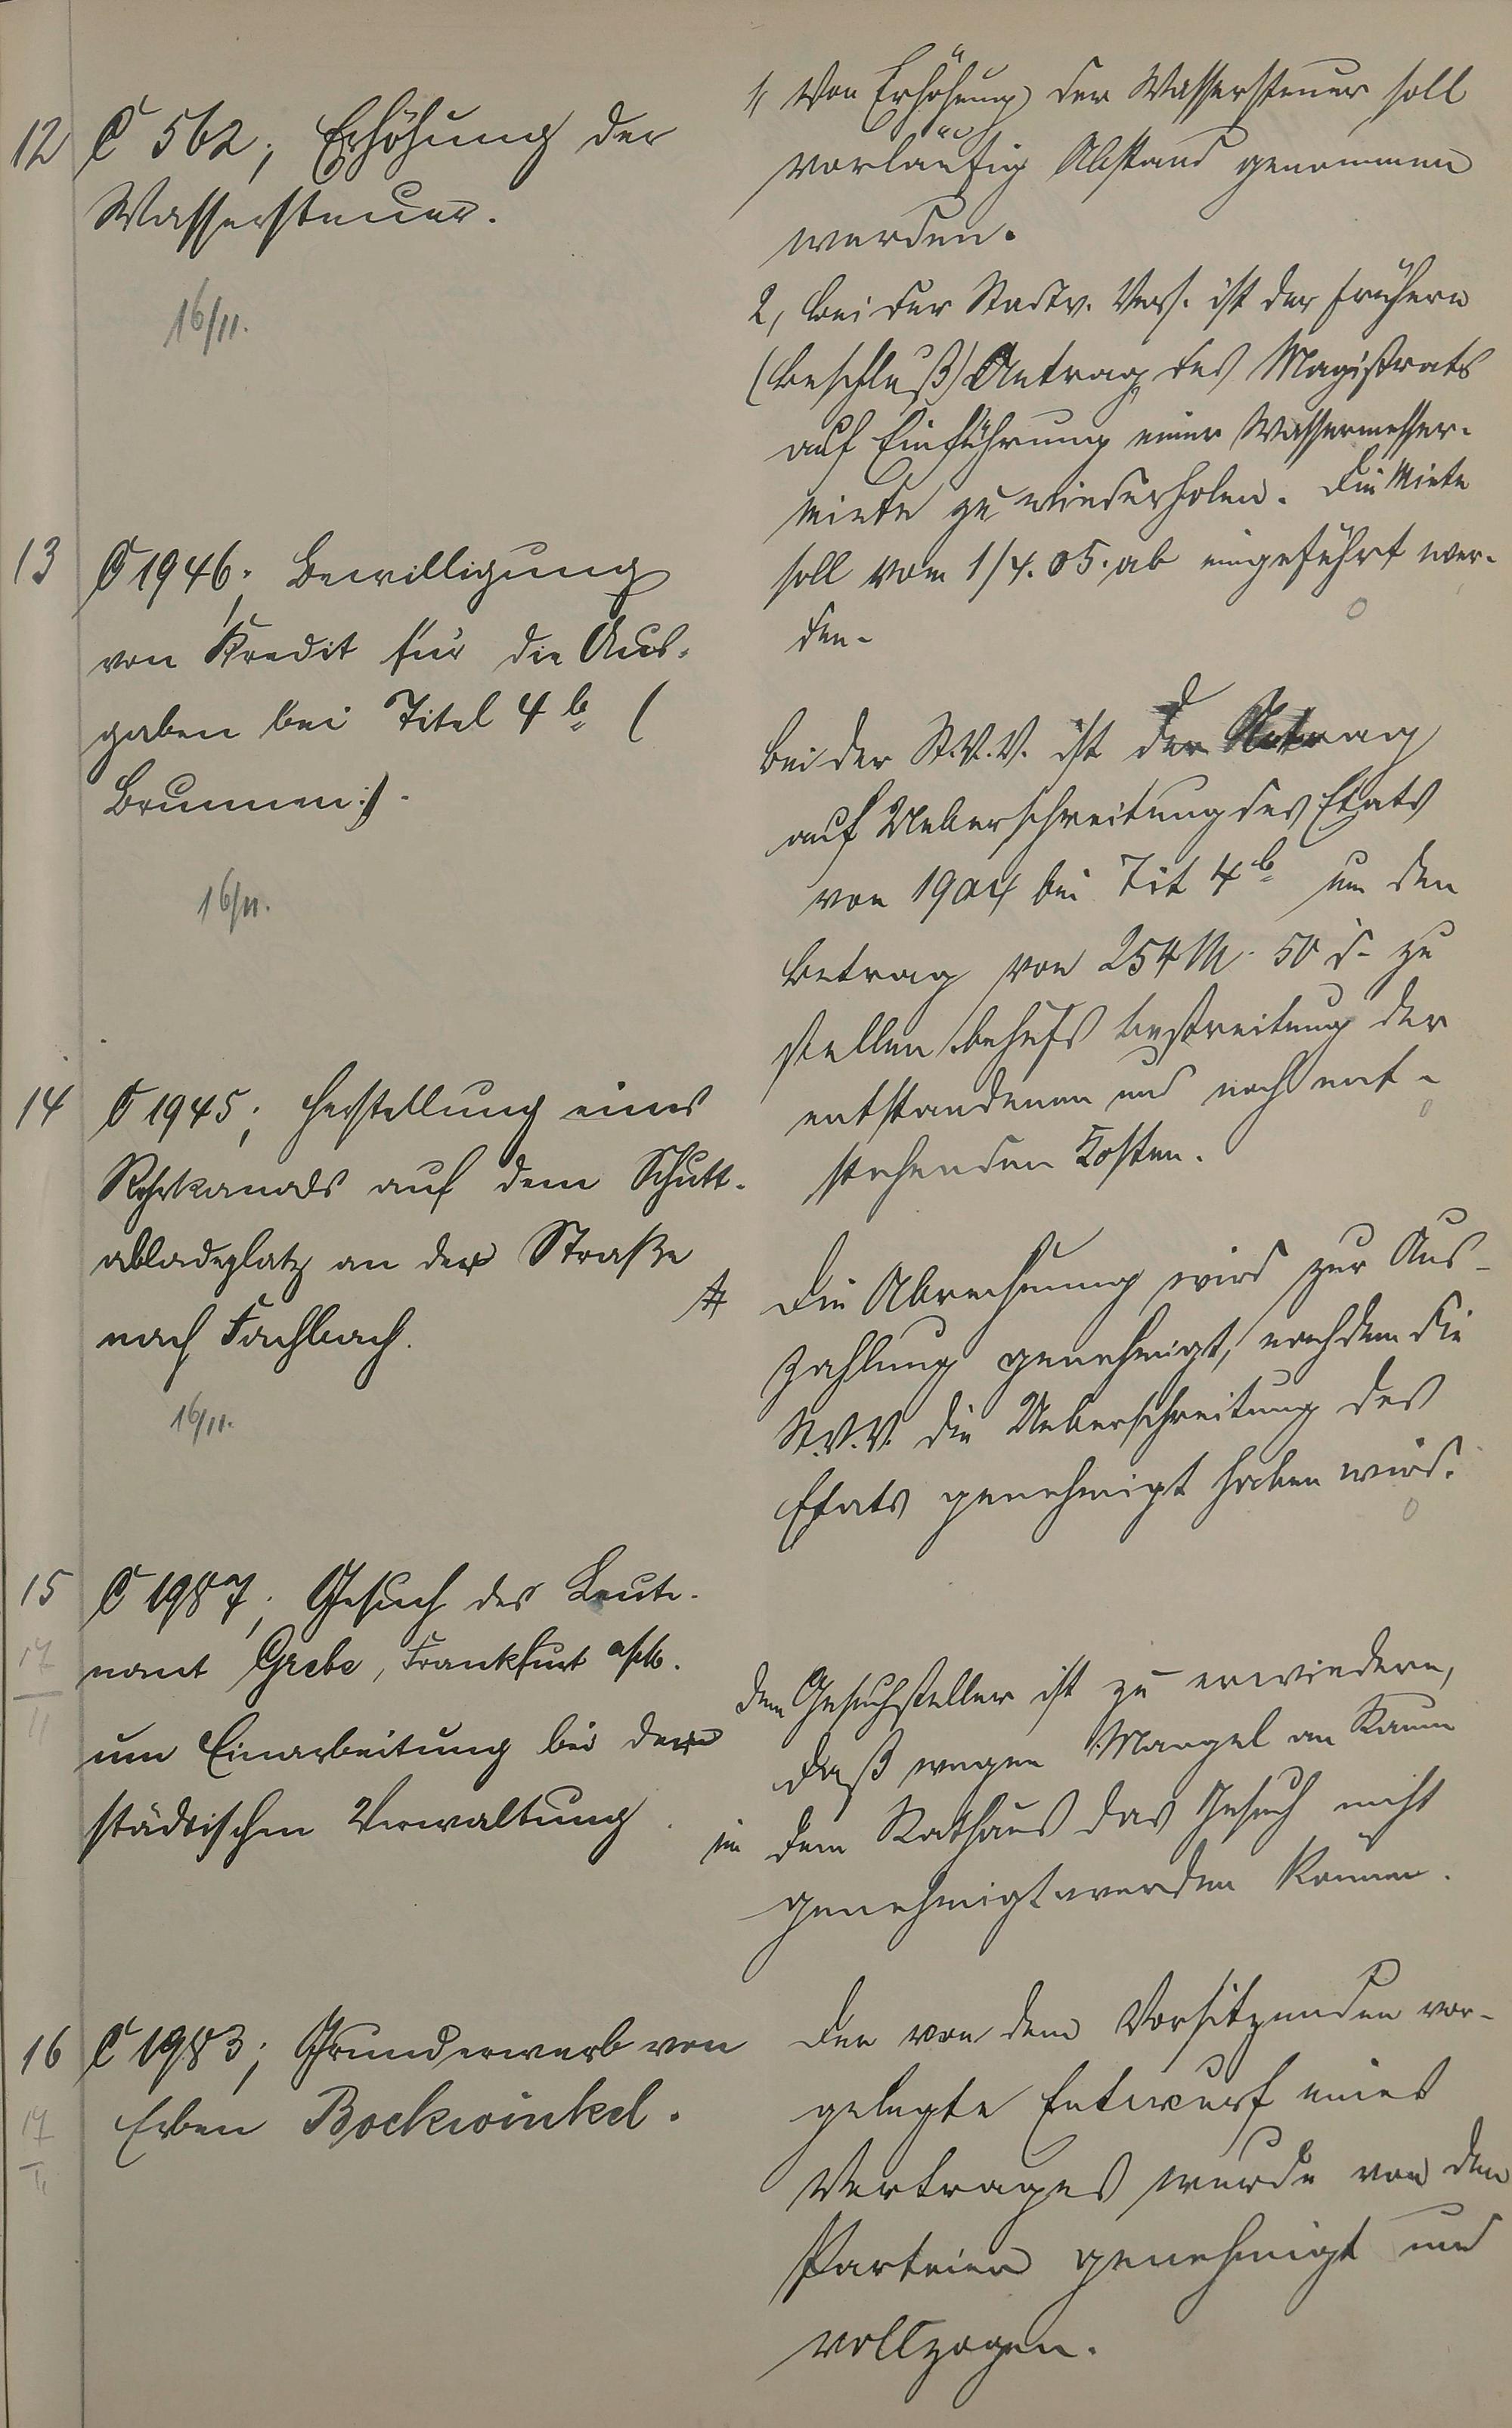 12
C 562; Erhöhung der
Wassersteuer.
16/11.
1, Von Erhöhung der Wassersteuer soll
vorläufig Abstand genommen
werden.
2, bei der Stadtv. Vers. ist der frühere
(Beschluß) Antrag des Magistrats
auf Einführung einer Wassermesser-
miete zu wiederholen. Die Miete
soll vom 1/4. 05. ab eingeführt wer-
den.
13
C 1946; Bewilligung
von Kredit für die Aus-
gaben bei Titel 4 b (
Brunnen:).
16/11.
Bei der St.V.V. ist der Antrag
auf Ueberschreitung des Etats
von 1904 bei Tit 4 b um den
Betrag von 254 M. 50 d. zu
stellen behufs Bestreitung der
entstandenen und noch ent-
stehenden Kosten.
14
C 1945; Herstellung eines
Rohrkanals auf dem Schutt-
abladeplatz an der Straße
nach Fachbach.
16/11.
Die Abrechnung wird zur Aus-
zahlung genehmigt, nachdem die
St.V.V. die Ueberschreitung des
Etats genehmigt haben wird.
15
17
11
C 1987; Gesuch des Leute-
nant Grebe, Frankfurt a/M.
um Einarbeitung bei der
städtischen Verwaltung.
Dem Gesuchsteller ist zu erwiedern,
daß wegen Mangel an Raum
in dem Rathaus das Gesuch nicht
genehmigt werden könne.
16
17
11
C 1983; Grunderwerb von
Erben Bockwinkel.
Der von dem Vorsitzenden vor-
gelegte Entwurf eines
Vertrages wurde von den
Parteien genehmigt und
vollzogen.